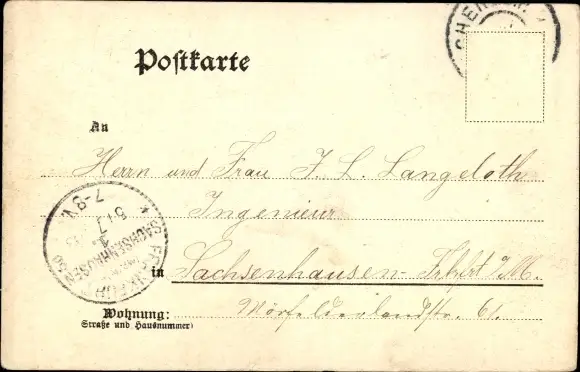 Postkarte
An
Herrn und Frau J. L. Langeloth
Ingenieur
in Sachsenhausen-Frkfrt a/M.
Wohnung: Mörfelderlandstr. 61.
Straße und Hausnummer)
FRANKFURT
SACHSENHAUSEN
7-8V.